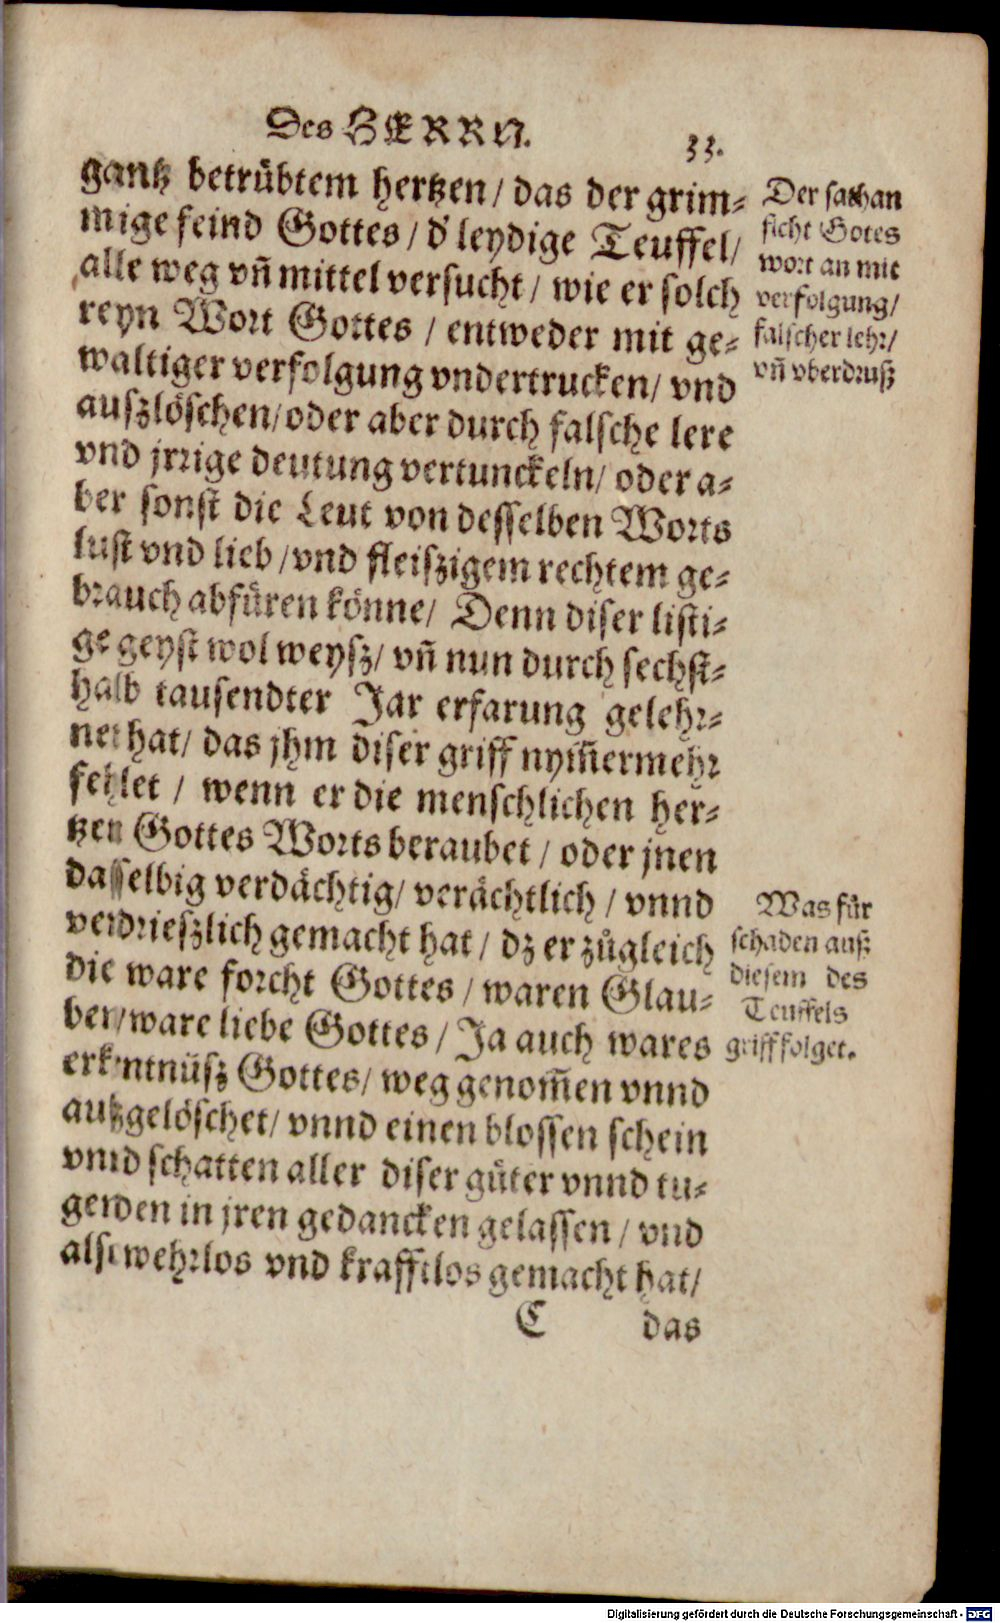 Des HERRN.
33.
gantz betrübtem hertzen / das der grim⸗
mige feind Gottes / d' leydige Teuffel /
alle weg vñ mittel versucht / wie er solch
reyn Wort Gottes / entweder mit ge⸗
waltiger verfolgung vndertrucken / vnd
auszlöschen / oder aber durch falsche lere
vnd jrrige deutung vertunckeln / oder a⸗
ber sonst die Leut von desselben Worts
lust vnd lieb / vnd fleiszigem rechtem ge⸗
brauch abfüren könne / Denn diser listi⸗
ge geyst wol weysz / vñ nun durch sechst⸗
halb tausendter Jar erfarung gelehr⸗
net hat / das jhm diser griff nym̃ermehr
fehlet / wenn er die menschlichen her⸗
tzen Gottes Worts beraubet / oder jnen
dasselbig verdächtig / verächtlich / vnnd
verdrieszlich gemacht hat / dz er zůgleich
die ware forcht Gottes / waren Glau⸗
ben / ware liebe Gottes / Ja auch wares
erkentnüsz Gottes / weg genom̃en vnnd
auszgelöschet / vnnd einen blossen schein
vnnd schatten aller diser güter vnnd tu⸗
genden in jren gedancken gelassen / vnd
also wehrlos vnd krafftlos gemacht hat /
C das
Der sathan
ficht Gotes
wort an mit
verfolgung /
falscher lehr /
vñ vberdruß
Was für
schaden auß
diesem des
Teuffels
griff folget.
Digitalisierung gefördert durch die Deutsche Forschungsgemeinschaft - DFG